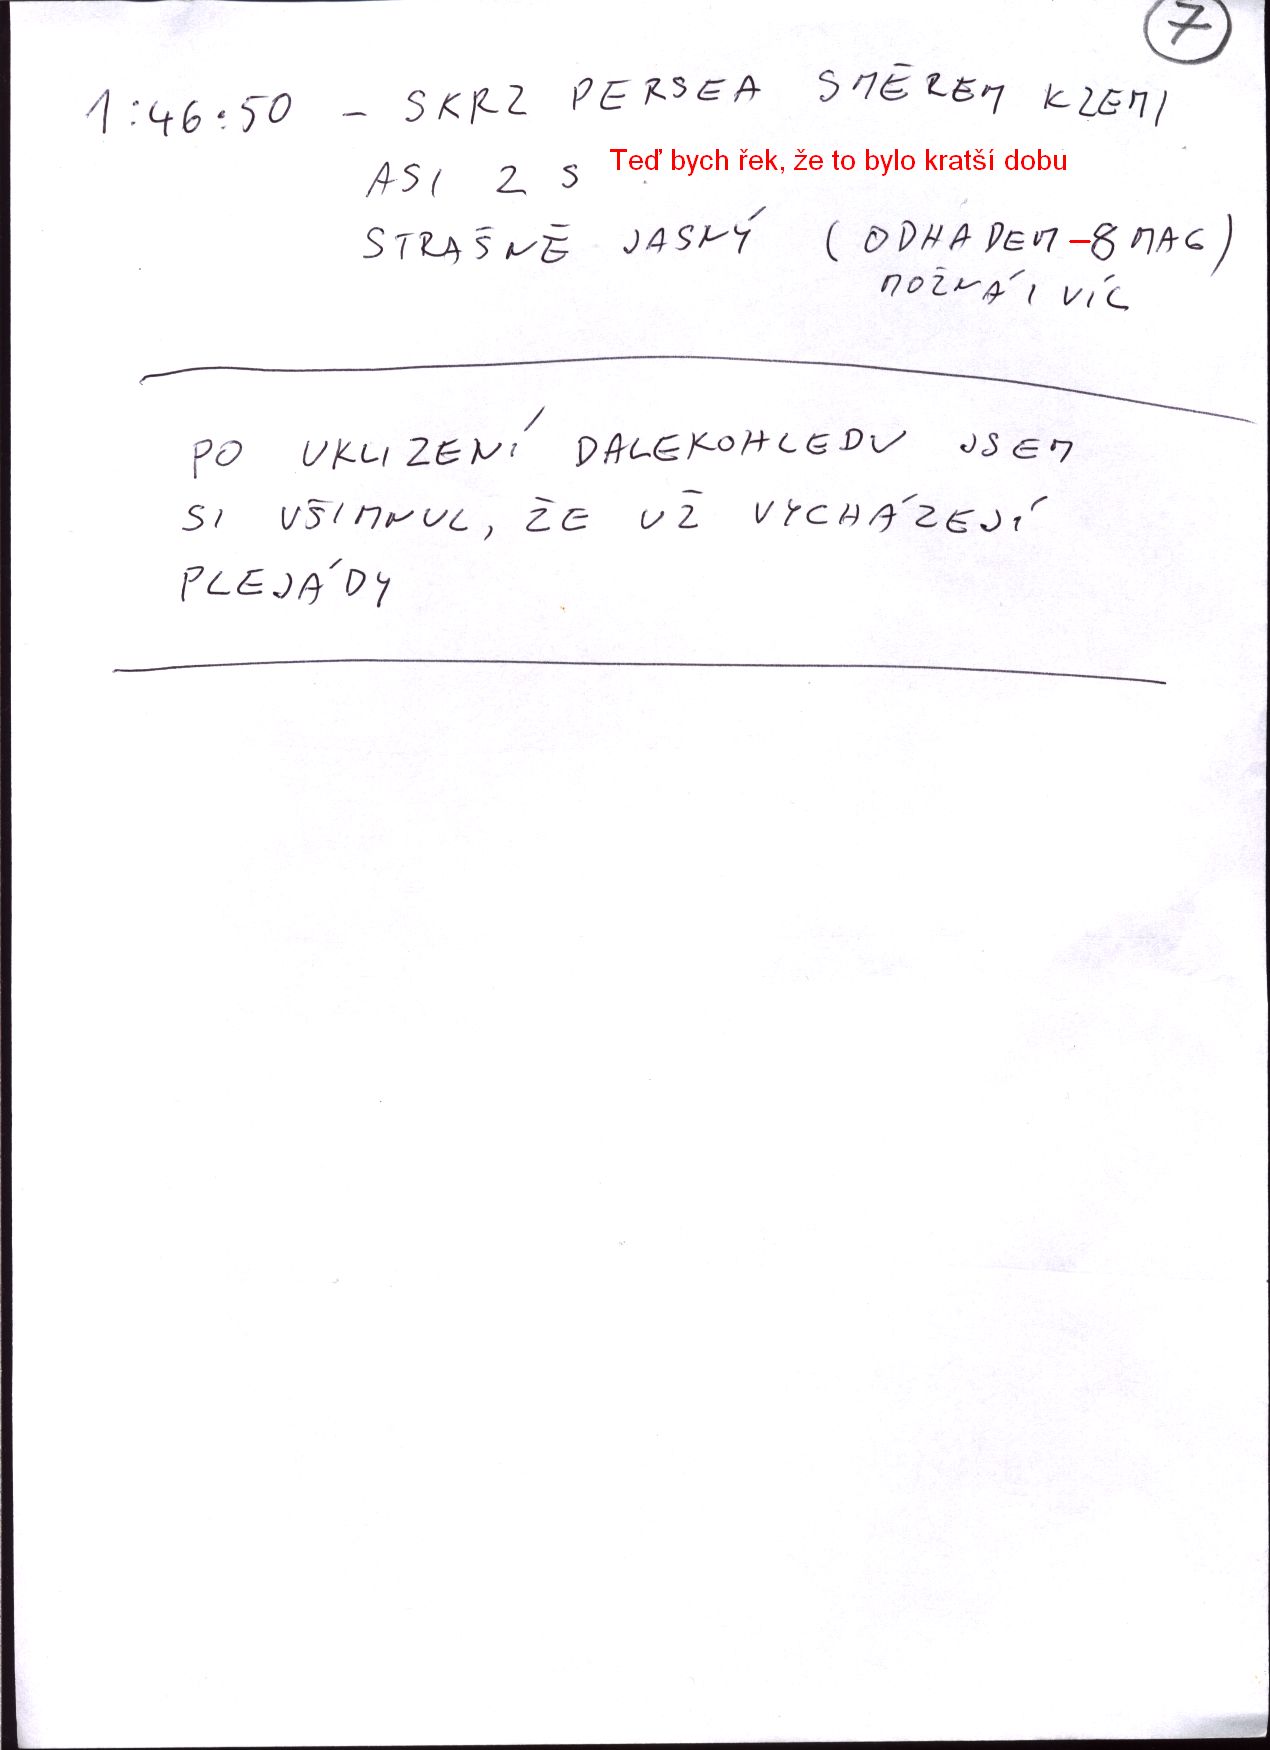 7
1:46:50 – SKRZ PERSEA SMĚREM K ZEMI
ASI 2 S Teď bych řek, že to bylo kratší dobu
STRAŠNĚ JASNÝ (ODHADEM -8 MAG)
MOŽNÁ I VÍC
PO UKLIZENÍ DALEKOHLEDU JSEM
SI VŠIMNUL, ŽE UŽ VYCHÁZEJÍ
PLEJÁDY